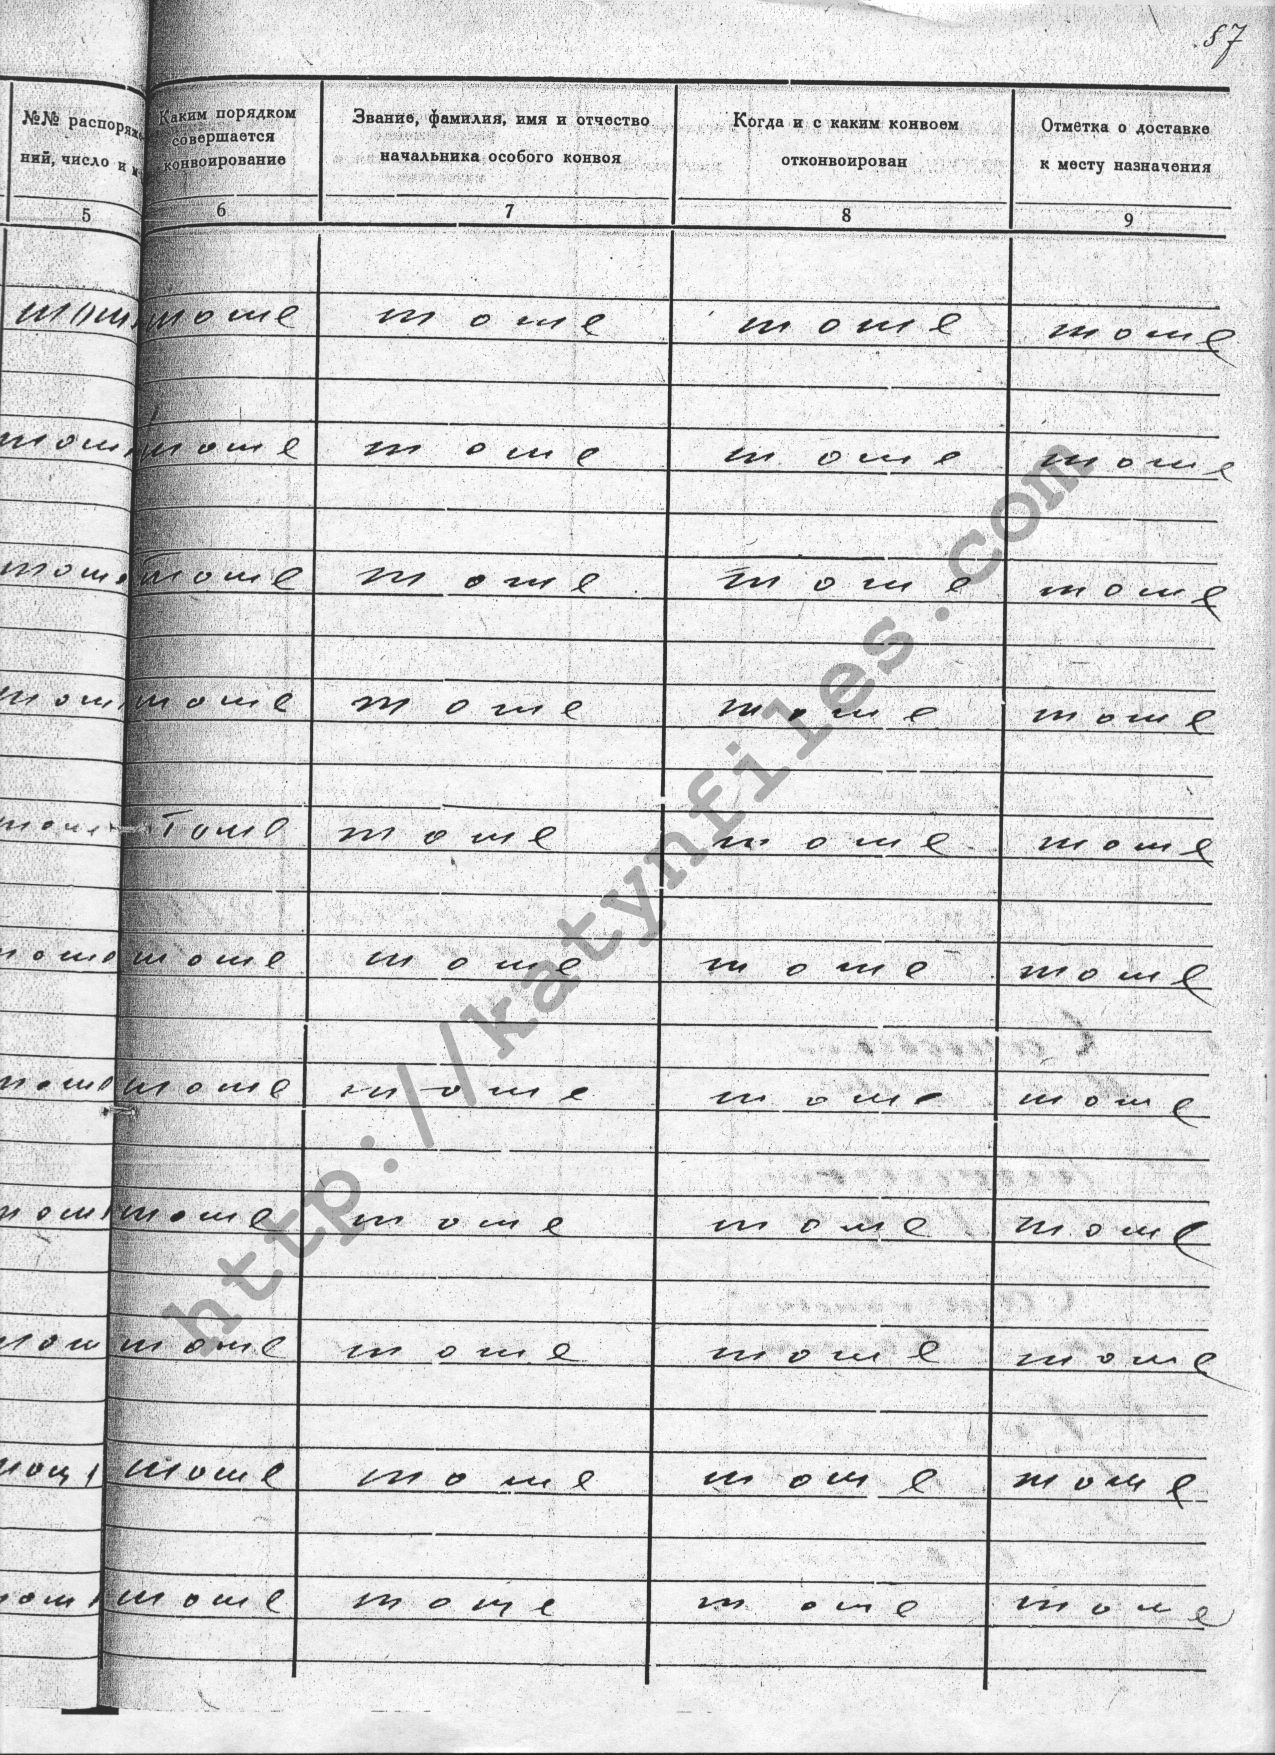 57
№№ распоряже
ний, число и м
Каким порядком
совершается
конвоирование
Звание, фамилия, имя и отчество
начальника особого конвоя
Когда и с каким конвоем
отконвоирован
Отметка о доставке
к месту назначения
5 6 7 8 9
тоже тоже тоже тоже тоже
тоже тоже тоже тоже тоже
тоже тоже тоже тоже тоже
тоже тоже тоже тоже тоже
тоже Тоже тоже тоже тоже
тоже тоже тоже тоже тоже
тоже тоже тоже тоже тоже
тоже тоже тоже тоже тоже
тоже тоже тоже тоже тоже
тоже тоже тоже тоже тоже
тоже тоже тоже тоже тоже
http://katynfiles.com